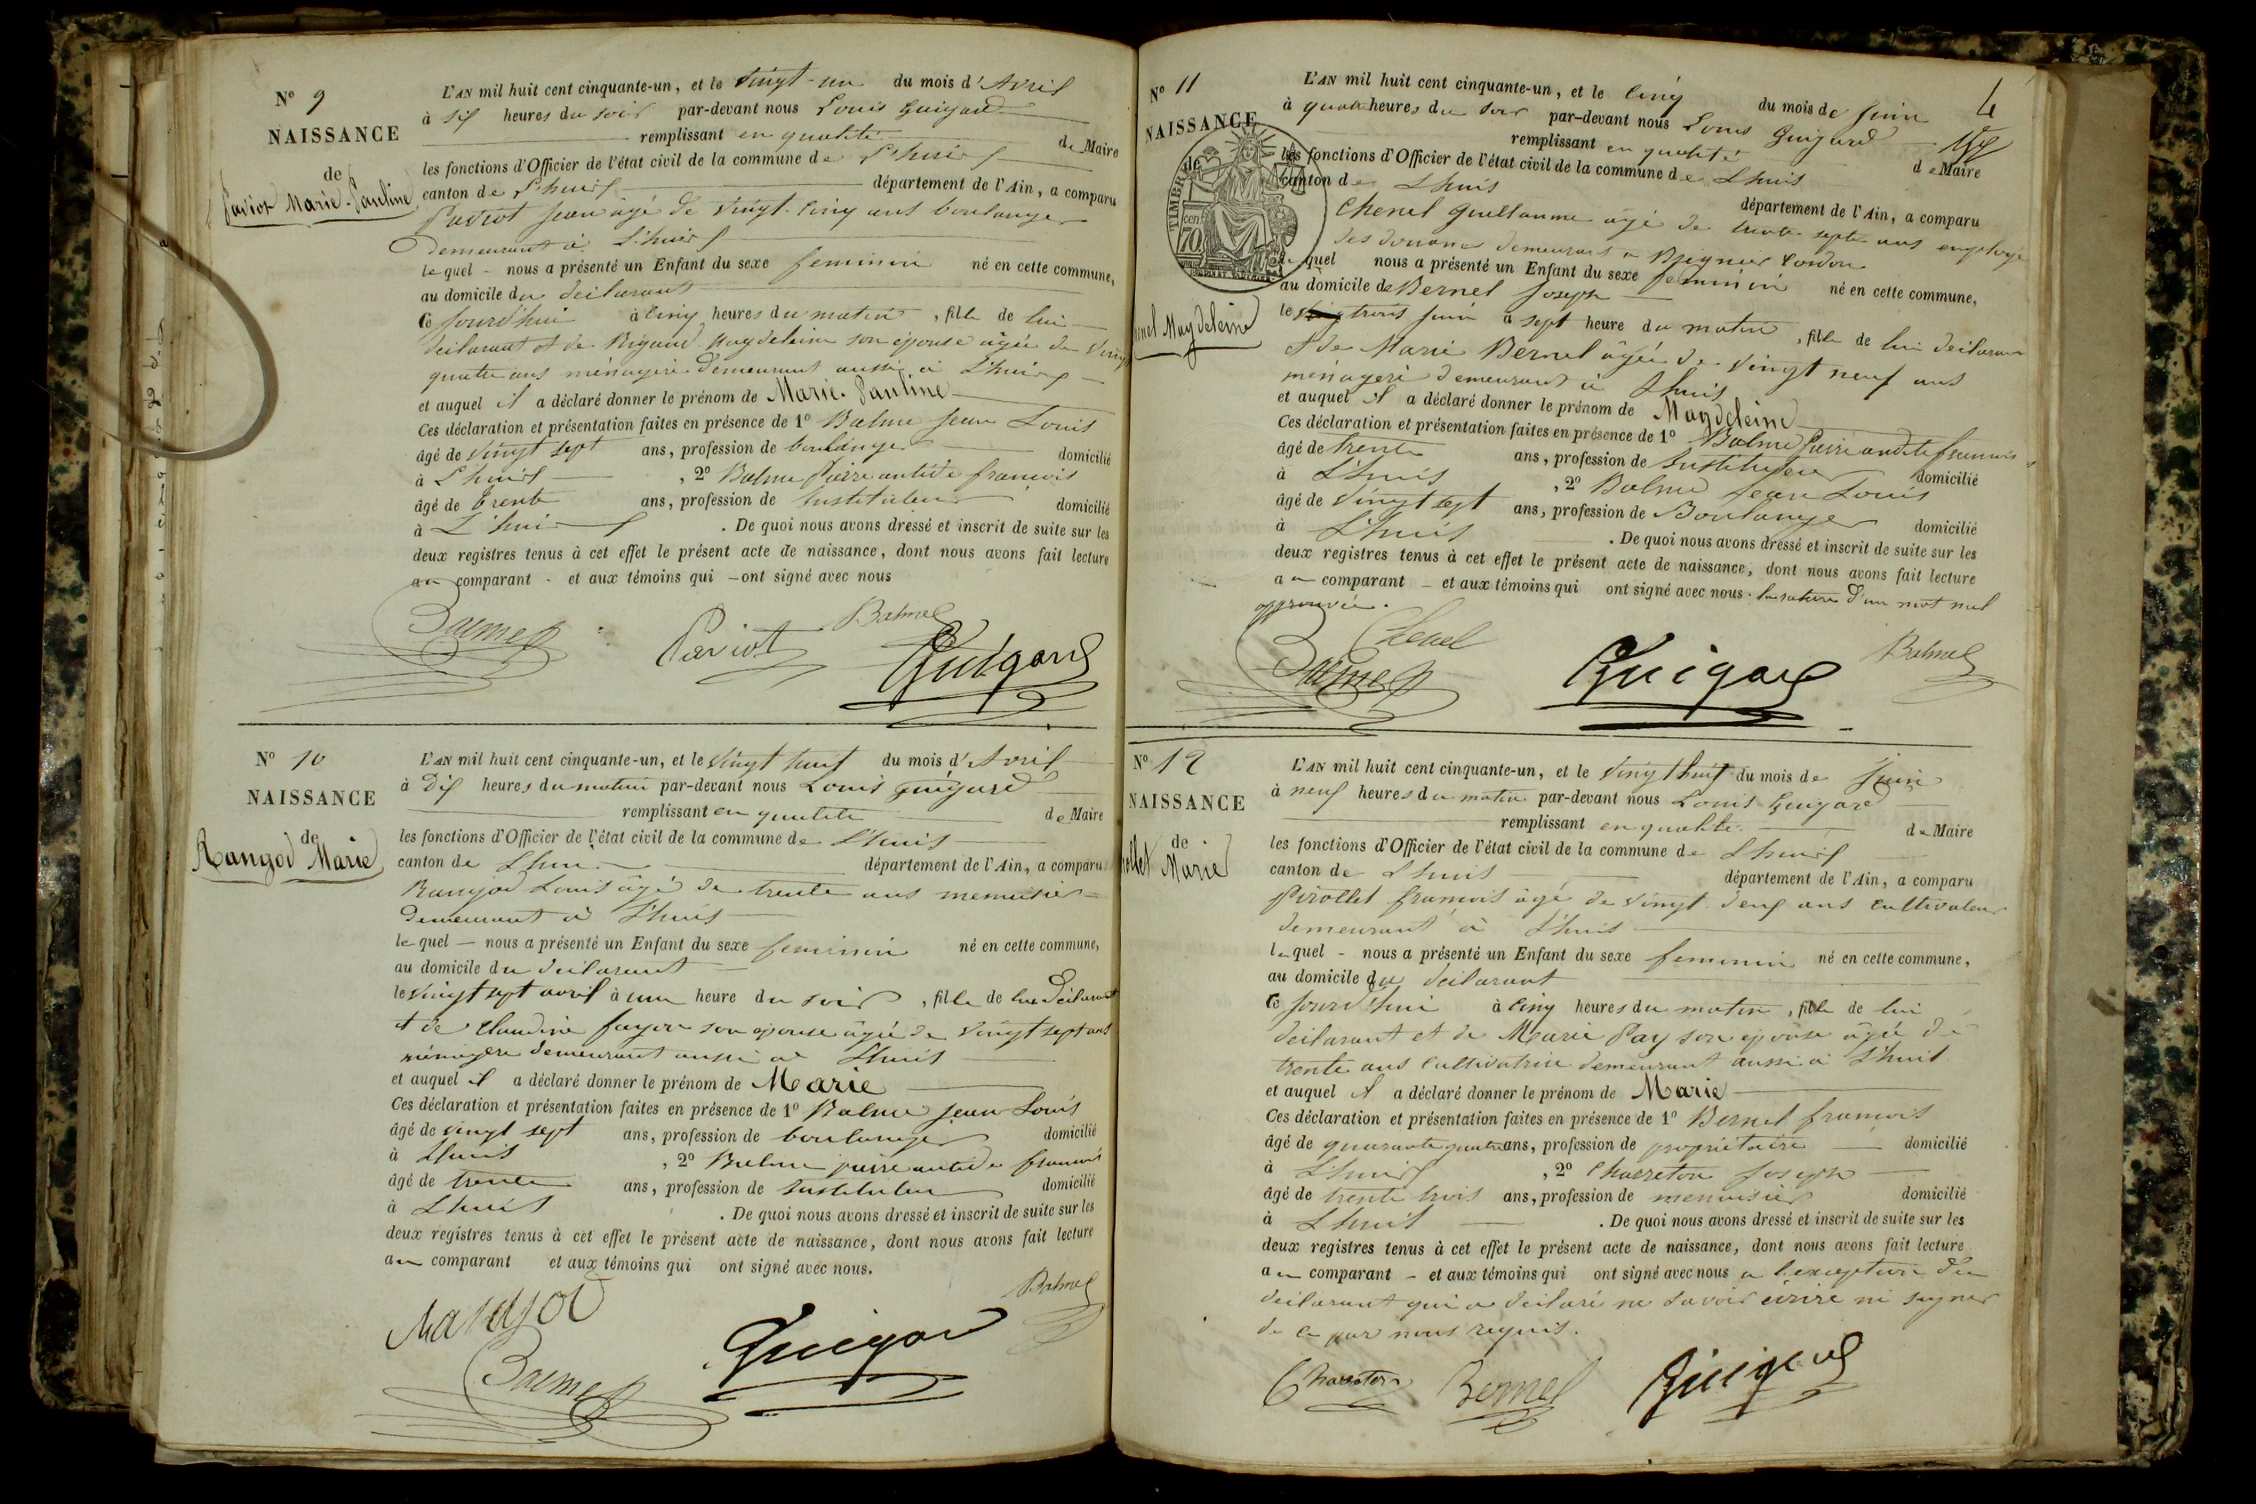 N° 9
NAISSANCE
de
Paviot Marie-Pauline
L'AN mil huit cent cinquante-un, et le vingt-un du mois d'Avril
à six heures du soir par-devant nous Louis Guigard
remplissant en qualité de Maire
les fonctions d'Officier de l'état civil de la commune de L'huis
canton de L'huis département de l'Ain, a comparu
Paviot Jean âgé de vingt-cinq ans boulanger
demeurant à L'huis
lequel nous a présenté un Enfant du sexe feminin né en cette commune,
au domicile du déclarant
Ce jourd'hui à cinq heures du matin, fille de lui
déclarant et de Rigaud Magdeleine son épouse âgée de vingt
quatre ans ménagère demeurant aussi à L'huis
et auquel il a déclaré donner le prénom de Marie-Pauline
Ces déclaration et présentation faites en présence de 1° Balme Jean Louis
âgé de vingt sept ans, profession de boulanger domicilié
à L'huis, 2° Balme Pierre antide françois
âgé de trente ans, profession de Instituteur domicilié
à L'huis. De quoi nous avons dressé et inscrit de suite sur les
deux registres tenus à cet effet le présent acte de naissance, dont nous avons fait lecture
au comparant et aux témoins qui ont signé avec nous
Balme Paviot Balme
Guigard
N° 10
NAISSANCE
de
Rangod Marie
L'AN mil huit cent cinquante-un, et le vingt huit du mois d'Avril
à dix heures du matin par-devant nous Louis Guigard
remplissant en qualité de Maire
les fonctions d'Officier de l'état civil de la commune de L'huis
canton de Lhuis département de l'Ain, a comparu
Rangod Louis âgé de trente ans menuisier
demeurant à L'huis
lequel nous a présenté un Enfant du sexe feminin né en cette commune,
au domicile du déclarant
le vingt sept avril à une heure du soir, fille de lui déclarant
et de Claudine fayon son épouse âgée de vingt sept ans
ménagère demeurant aussi à Lhuis
et auquel il a déclaré donner le prénom de Marie
Ces déclaration et présentation faites en présence de 1° Balme Jean Louis
âgé de vingt sept ans, profession de boulanger domicilié
à Lhuis, 2° Balme pierre antide françois
âgé de trente ans, profession de Instituteur domicilié
à Lhuis. De quoi nous avons dressé et inscrit de suite sur les
deux registres tenus à cet effet le présent acte de naissance, dont nous avons fait lecture
au comparant et aux témoins qui ont signé avec nous.
Rangod Balme
Balme Guigard
4
N° 11
NAISSANCE
de
TIMBRE
70 cen
nel Magdeleine
L'AN mil huit cent cinquante-un, et le cinq du mois de Juin
à quatre heures du soir par-devant nous Louis Guigard
remplissant en qualité de Maire
les fonctions d'Officier de l'état civil de la commune de Lhuis
canton de Lhuis département de l'Ain, a comparu
Chenel Guillaume âgé de trente sept ans employé
des douanes demeurant à Bregnier Cordon
lequel nous a présenté un Enfant du sexe feminin né en cette commune,
au domicile de Bernel Joseph
le trois juin à sept heure du matin, fille de lui déclarant
et de Marie Bernel âgée de vingt neuf ans
ménagère demeurant à Lhuis
et auquel il a déclaré donner le prénom de Magdeleine
Ces déclaration et présentation faites en présence de 1° Balme Pierre antide françois
âgé de trente ans, profession de Instituteur domicilié
à L'huis, 2° Balme Jean Louis
âgé de vingt sept ans, profession de Boulanger domicilié
à L'huis. De quoi nous avons dressé et inscrit de suite sur les
deux registres tenus à cet effet le présent acte de naissance, dont nous avons fait lecture
au comparant et aux témoins qui ont signé avec nous. la rature d'un mot nul
approuvée.
Chenel
Balme Guigard Balme
N° 12
NAISSANCE
de
ollet Marie
L'AN mil huit cent cinquante-un, et le vingt huit du mois de Juin
à neuf heures du matin par-devant nous Louis Guigard
remplissant en qualité de Maire
les fonctions d'Officier de l'état civil de la commune de L'huis
canton de Lhuis département de l'Ain, a comparu
Pirollet françois âgé de vingt deux ans cultivateur
demeurant à L'huis
lequel nous a présenté un Enfant du sexe feminin né en cette commune,
au domicile du déclarant
Ce jourd'hui à cinq heures du matin, fille de lui
déclarant et de Marie Pay son épouse âgée de
trente ans cultivatrice demeurant aussi à L'huis
et auquel il a déclaré donner le prénom de Marie
Ces déclaration et présentation faites en présence de 1° Bernel françois
âgé de quarante quatre ans, profession de propriétaire domicilié
à L'huis, 2° Charreton Joseph
âgé de trente trois ans, profession de menuisier domicilié
à L'huis. De quoi nous avons dressé et inscrit de suite sur les
deux registres tenus à cet effet le présent acte de naissance, dont nous avons fait lecture
au comparant et aux témoins qui ont signé avec nous à l'exception du
déclarant qui a déclaré ne savoir écrire ni signer
de ce par nous requis.
Charreton Bernel Guigard